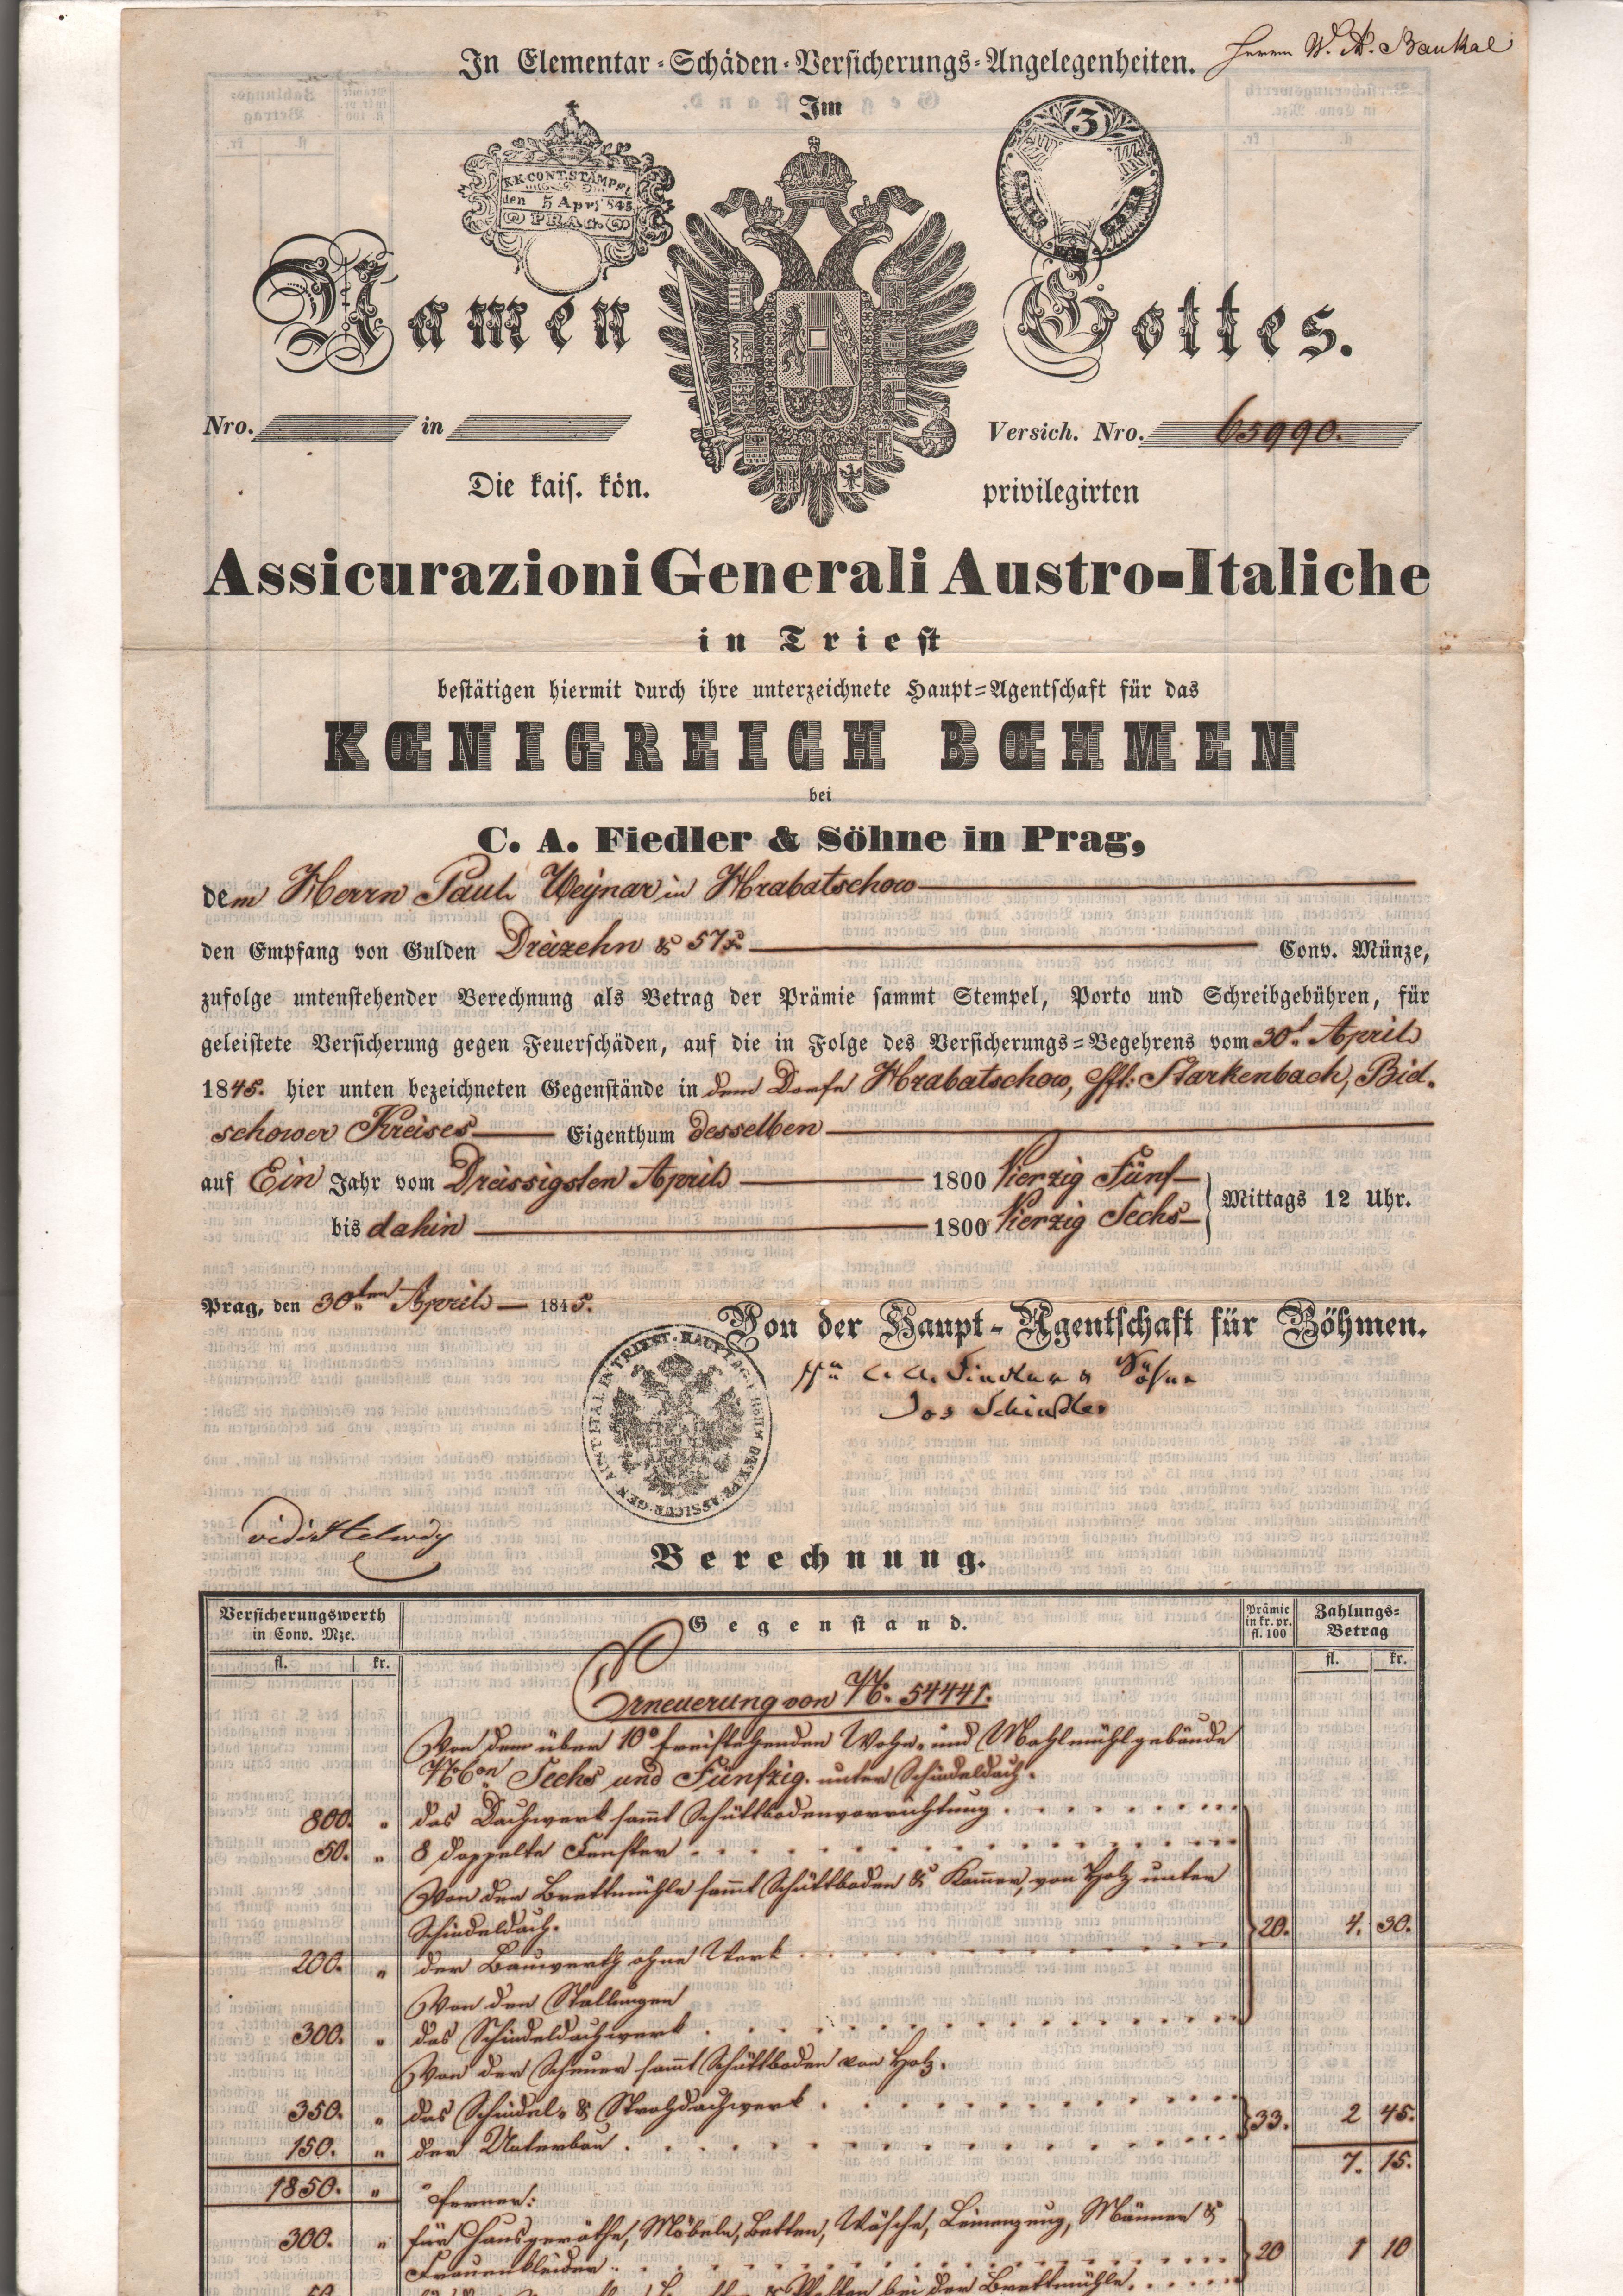 Herrn W. A. Baukal
In Elementar-Schäden-Versicherungs-Angelegenheiten.
Im
K.K. CONT. STÄMPEL
den 5 Apr. 845
PRAG.
3
Namen Gottes.
Nro. in
Versich. Nro. 65990.
Die kais. kön. privilegirten
Assicurazioni Generali Austro-Italiche
in Triest
bestätigen hiermit durch ihre unterzeichnete Haupt-Agentschaft für das
KŒNIGREICH BŒHMEN
bei
C. A. Fiedler & Söhne in Prag,
dem Herrn Paul Weÿnar in Hrabatschow
den Empfang von Gulden Dreizehn & 57 x Conv. Münze,
zufolge untenstehender Berechnung als Betrag der Prämie sammt Stempel, Porto und Schreibgebühren, für
geleistete Versicherung gegen Feuerschäden, auf die in Folge des Versicherungs-Begehrens vom 30t. April
1845. hier unten bezeichneten Gegenstände in dem Dorfe Hrabatschow, Hft: Starkenbach, Bid-
schower Kreises Eigenthum desselben
auf Ein Jahr vom Dreissigsten April 1800 Vierzig Fünf
bis dahin 1800 Vierzig Sechs
Mittags 12 Uhr.
Prag, den 30ten April 1845.
Von der Haupt-Agentschaft für Böhmen.
C. A. Fiedler & Söhne
Jos Schindler
Berechnung.
Versicherungswerth in Conv. Mze. Gegenstand. Prämie in kr. pr. fl. 100 Zahlungs-Betrag
fl. kr. fl. kr.
Erneuerung von No. 54441.
Von dem über 10° freistehenden Wohn- und Mahlmühlgebäude
NCon Sechs und Fünfzig. unter Schindeldach.
800. " das Dachwerk sammt Schüttbodenvorrichtung
50. " 8 doppelte Fenster
Von der Brettmühle sammt Schüttboden & Kammer, von Holz unter
Schindeldach. 20. 4. 30.
200. " der Bauwerth ohne Werk
Von den Stallungen
300. " das Schindeldachwerk
Von der Scheuer sammt Schüttboden von Holz.
350. " das Schindel- & Strohdachwerk 33. 2 45.
150. " der Unterbau
7. 15.
1850. " ferner:
300. " für Hausgeräthe, Möbeln, Betten, Wäsche, Leinenzeug, Männer &
Frauenkleider 20 1 10
50 bei der Brettmühle.